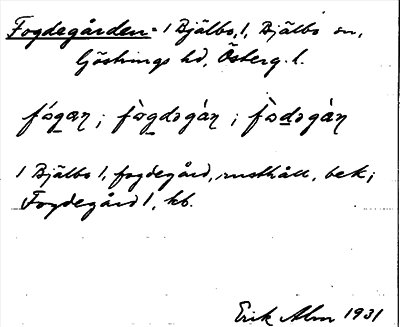 Fogdegården = 1 Bjälbo, 1, Bjälbo sn,
Göstrings hd, Österg. l.
fógan ; fògdəgàn ; fòdəgàn
1 Bjälbo 1, fogdegård, rusthåll, bek;
Fogdegård 1, kb.
Erik Alm 1931